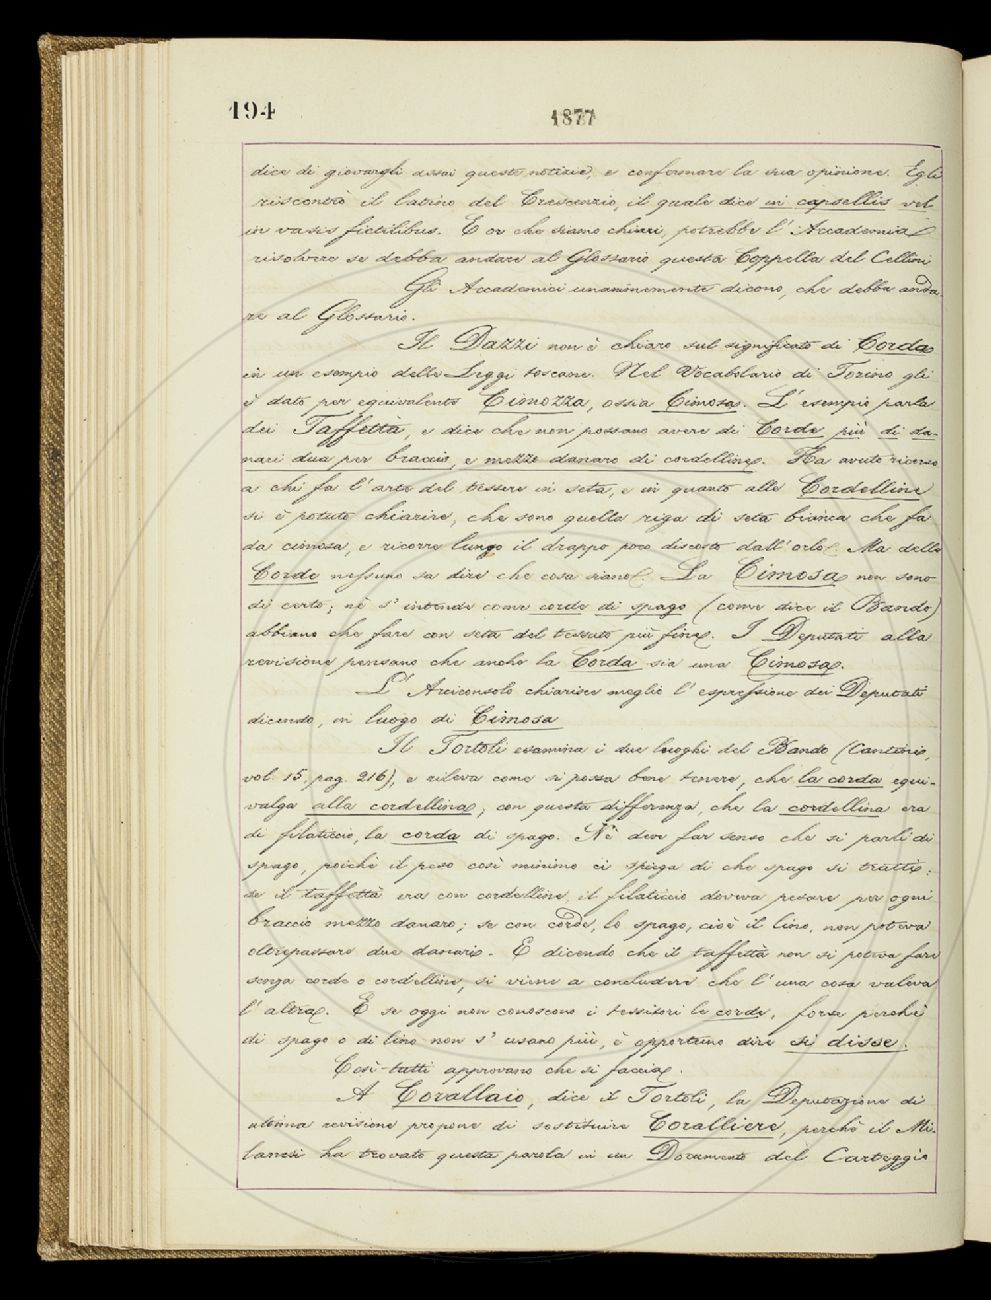 194
1877
dice di giovargli assai queste notizie, e confermare la sua opinione. Egli
riscontrò il latino del Crescenzio, il quale dice in capsellis vel
in vasis fictilibus. E or che siamo chiari, potrebbe l'Accademia
risolvere se debba andare al Glossario questa Coppella del Cellini
Gli Accademici unanimemente dicono, che debba anda-
re al Glossario.
Il Dazzi non è chiaro sul significato di Corda
in un esempio delle Leggi toscane. Nel Vocabolario di Torino gli
è dato per equivalente Cimozza, ossia Cimosa. L'esempio parla
dei Taffettà, e dice che non possano avere di Corde più di da-
nari due per braccio, e mezzo danaro di cordelline. Ha avuto ricorso
a chi fa l'arte del tessere in seta, e in quanto alle Cordelline
si è potuto chiarire, che sono quella riga di seta bianca che fa
da cimosa, e ricorre lungo il drappo poco discosto dall'orlo. Ma delle
Corde nessuno sa dire che cosa siano. La Cimosa non sono
di certo; nè s'intende come corde di spago (come dice il Bando)
abbiano che fare con seta del tessuto più fine. I Deputati alla
revisione pensano che anche la Corda sia una Cimosa.
L'Arciconsolo chiarisce meglio l'espressione dei Deputati
dicendo, in luogo di Cimosa
Il Tortoli esamina i due luoghi del Bando (Cantini,
vol. 15, pag. 216), e rileva come si possa bene tenere, che la corda equi-
valga alla cordellina; con questa differenza, che la cordellina era
di filaticcio, la corda di spago. Nè deve far senso che si parli di
spago, poichè il peso così minimo ci spiega di che spago si tratti:
se il taffettà era con cordelline, il filaticcio doveva pesare per ogni
braccio mezzo danaro; se con corde, lo spago, cioè il lino, non poteva
oltrepassare due danari. E dicendo che il taffettà non si poteva fare
senza corde o cordelline, si viene a concludere che l'una cosa valeva
l'altra. E se oggi non conoscono i tessitori le corde, forse perchè
di spago o di lino non s'usano più, è opportuno dire si disse.
Così tutti approvano che si faccia.
A Corallaio, dice il Tortoli, la Deputazione di
ultima revisione propone di sostituire Coralliere, perchè il Mi-
lanesi ha trovato questa parola in un Documento del Carteggio